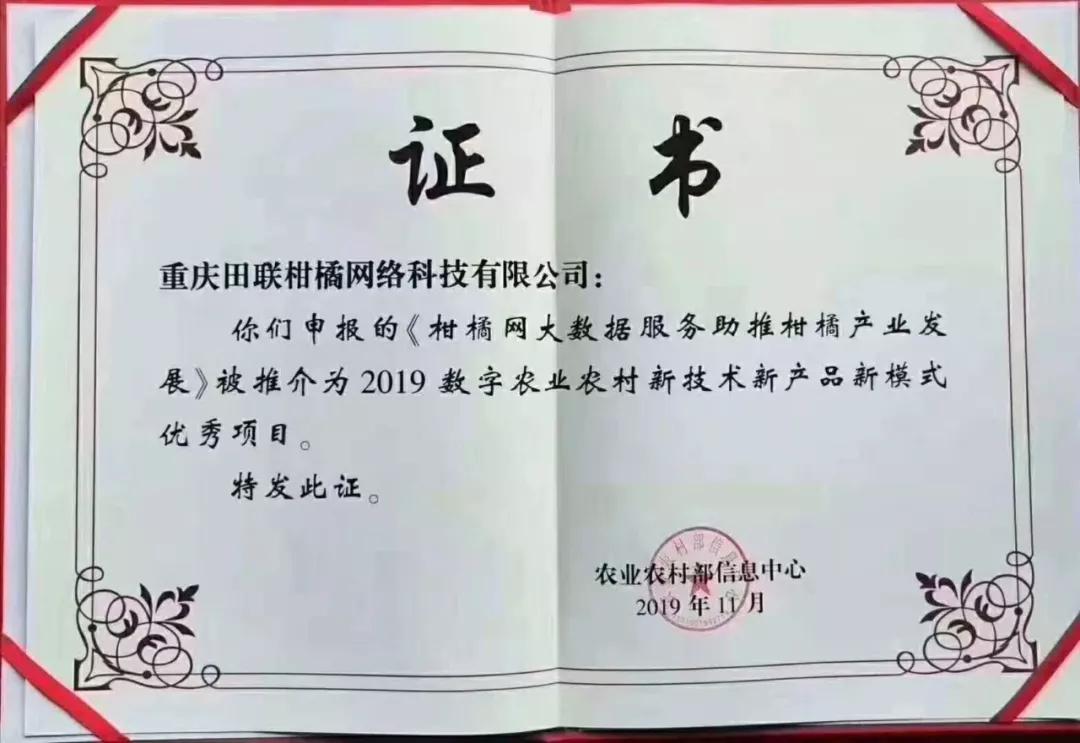 证 书
重庆田联柑橘网络科技有限公司：
你们申报的《柑橘网大数据服务助推柑橘产业发
展》被推介为 2019 数字农业农村新技术新产品新模式
优秀项目。
特发此证。
农业农村部信息中心
2019 年 11 月